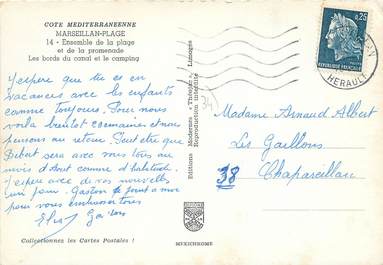 COTE MEDITERRANEENNE
MARSEILLAN-PLAGE
14 - Ensemble de la plage
et de la promenade
Les bords du canal et le camping
J'espère que tu es en
vacances avec les enfants
comme toujours. Pour nous
voila bientot semaines et nous
pensons au retour. Peut etre que
sera avec vous tous au
mois d'Aout comme d'habitude.
J'espère avec de vos nouvelles
un jour. Gaston se joint a moi
pour vous embrasser tous
Gaston
Collectionnez les Cartes Postales !
Editions Modernes "Théojac" Limoges
Reproduction interdite
MEXICHROME
0,25
REPUBLIQUE FRANÇAISE
HERAULT
34
Madame Arnaud Albert
Les Gaillons
38 Chapareillan